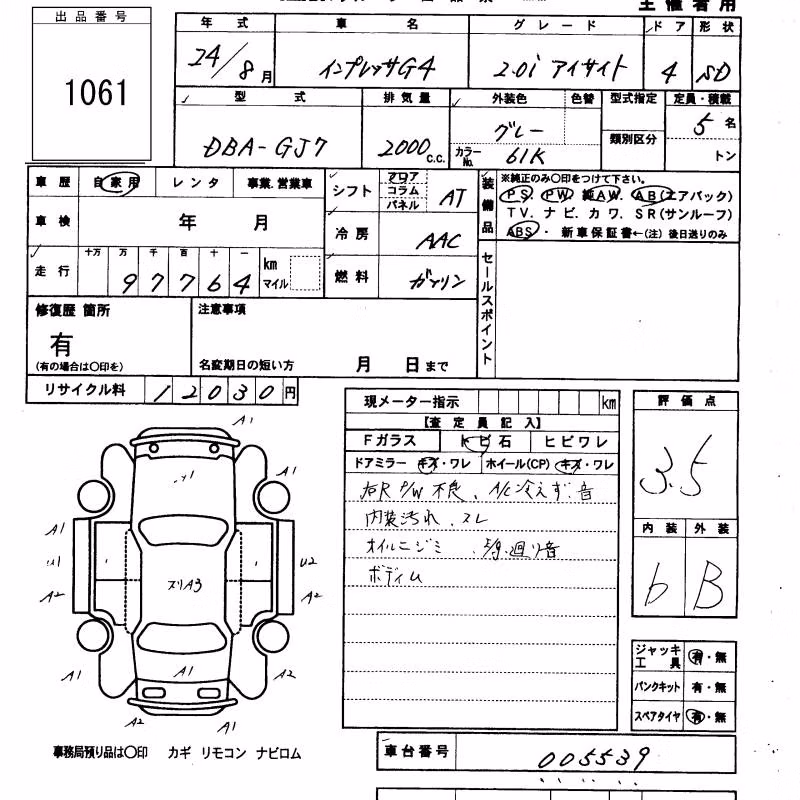 主催者用
出品番号
1061
年式 車名 グレード ドア 形状
24/8月 インプレッサG4 2.0i アイサイト 4 SD
型式 排気量 外装色 色替 型式指定 定員・積載
DBA-GJ7 2000c.c. グレー 5名
カラーNo. 61K 類別区分 トン
車歴 自家用 レンタ 事業.営業車
シフト フロア コラム パネル AT
装備品 ※純正のみ○印をつけて下さい。
PS. PW. 純AW. AB(エアバック)
TV. ナビ. カワ. SR(サンルーフ)
ABS・ 新車保証書←(注)後日送りのみ
車検 年 月
冷房 AAC
走行 十万 万 千 百 十 一
97764 km マイル
燃料 ガソリン
セールスポイント
修復歴 箇所
有
(有の場合は○印を)
注意事項
名変期日の短い方 月 日まで
リサイクル料 12030円
現メーター指示 km
【査定員記入】
Fガラス トビ石 ヒビワレ
ドアミラー キズ・ワレ ホイール(CP) キズ・ワレ
右R P/W 不良、A/C冷えず.音
内装汚れ、スレ
オイルニジミ
ボディム
評価点
3.5
内装 外装
b B
A1
A1 A1
A1
A1 U2
A2 ズリA3 A2
A1 A1 A1
A2 A1
ジャッキ工具 有・無
パンクキット 有・無
スペアタイヤ 有・無
事務局預り品は○印 カギ リモコン ナビロム
車台番号 005539